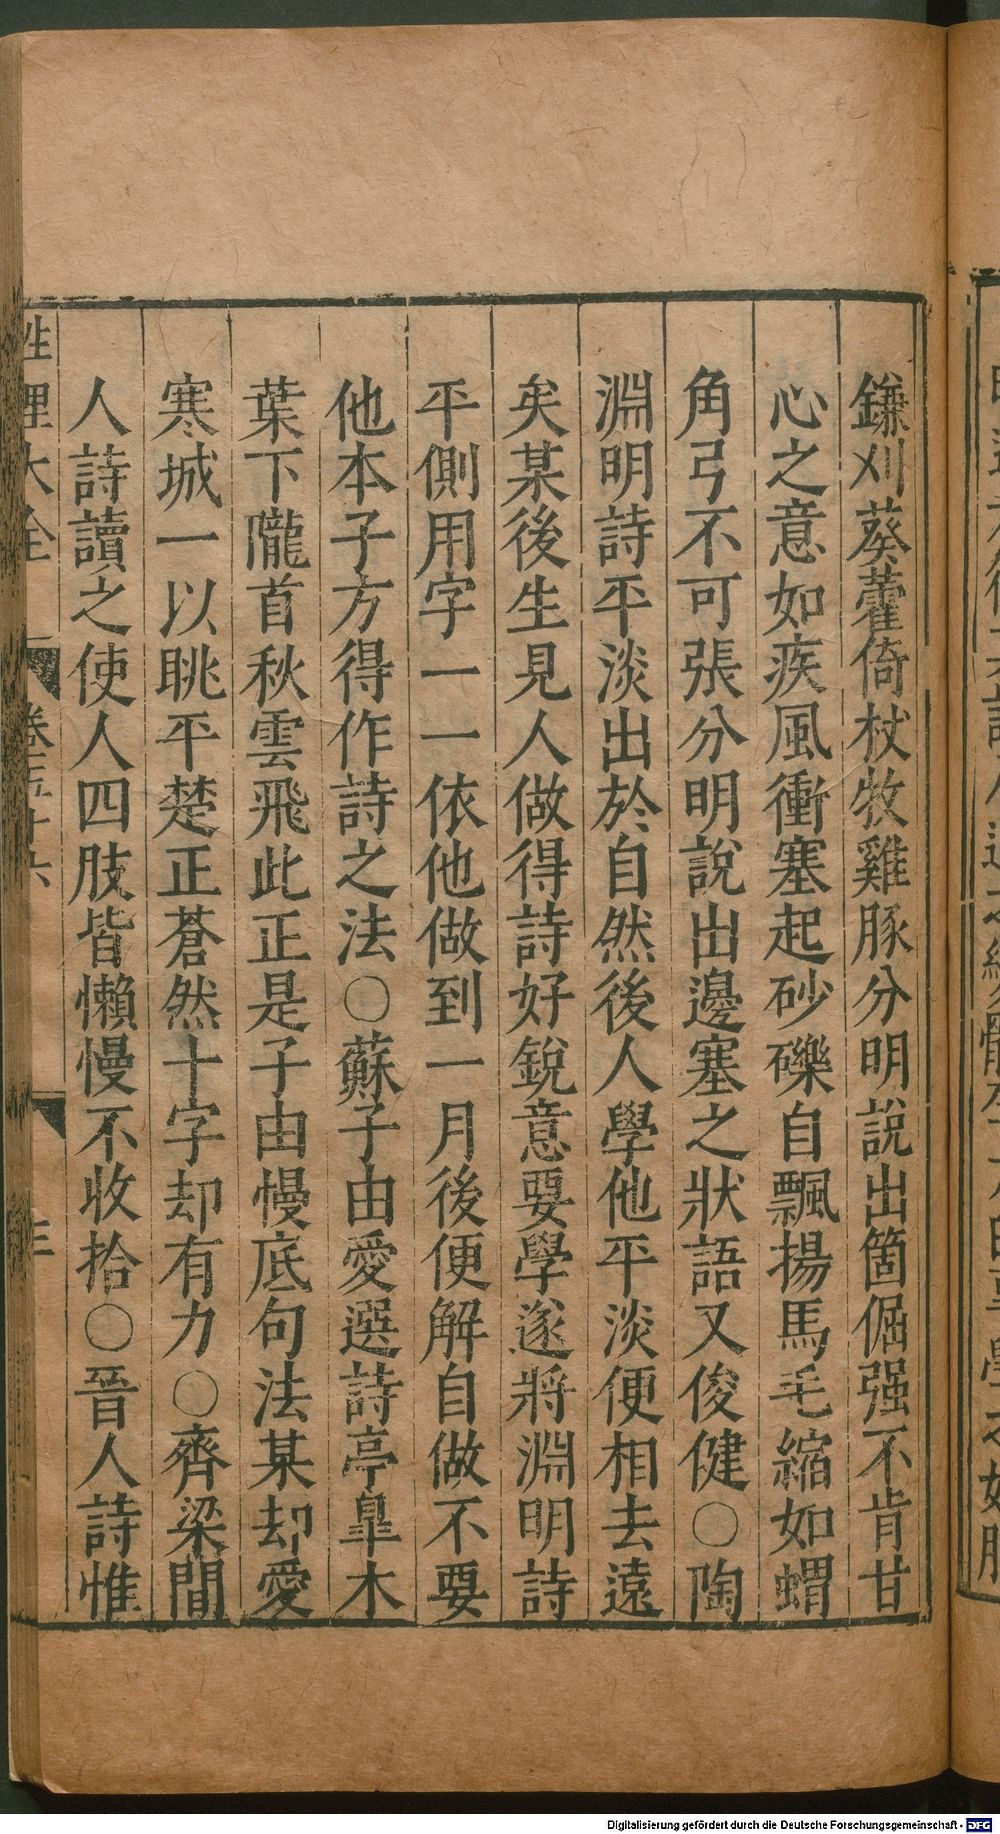 鎌刈葵藿倚杖牧雞豚分明說出箇倔强不肯甘
心之意如疾風衝塞起砂礫自飄揚馬毛縮如蝟
角弓不可張分明說出邊塞之狀語又俊健○陶
淵明詩平淡出於自然後人學他平淡便相去遠
矣某後生見人做得詩好銳意要學遂將淵明詩
平側用字一一依他做到一月後便解自做不要
他本子方得作詩之法○蘇子由愛選詩亭皐木
葉下隴首秋雲飛此正是子由慢底句法某却愛
寒城一以眺平楚正蒼然十字却有力○齊梁間
人詩讀之使人四肢皆懶慢不收拾○晉人詩惟
性理大全 卷五十六 三
Digitalisierung gefördert durch die Deutsche Forschungsgemeinschaft - DFG